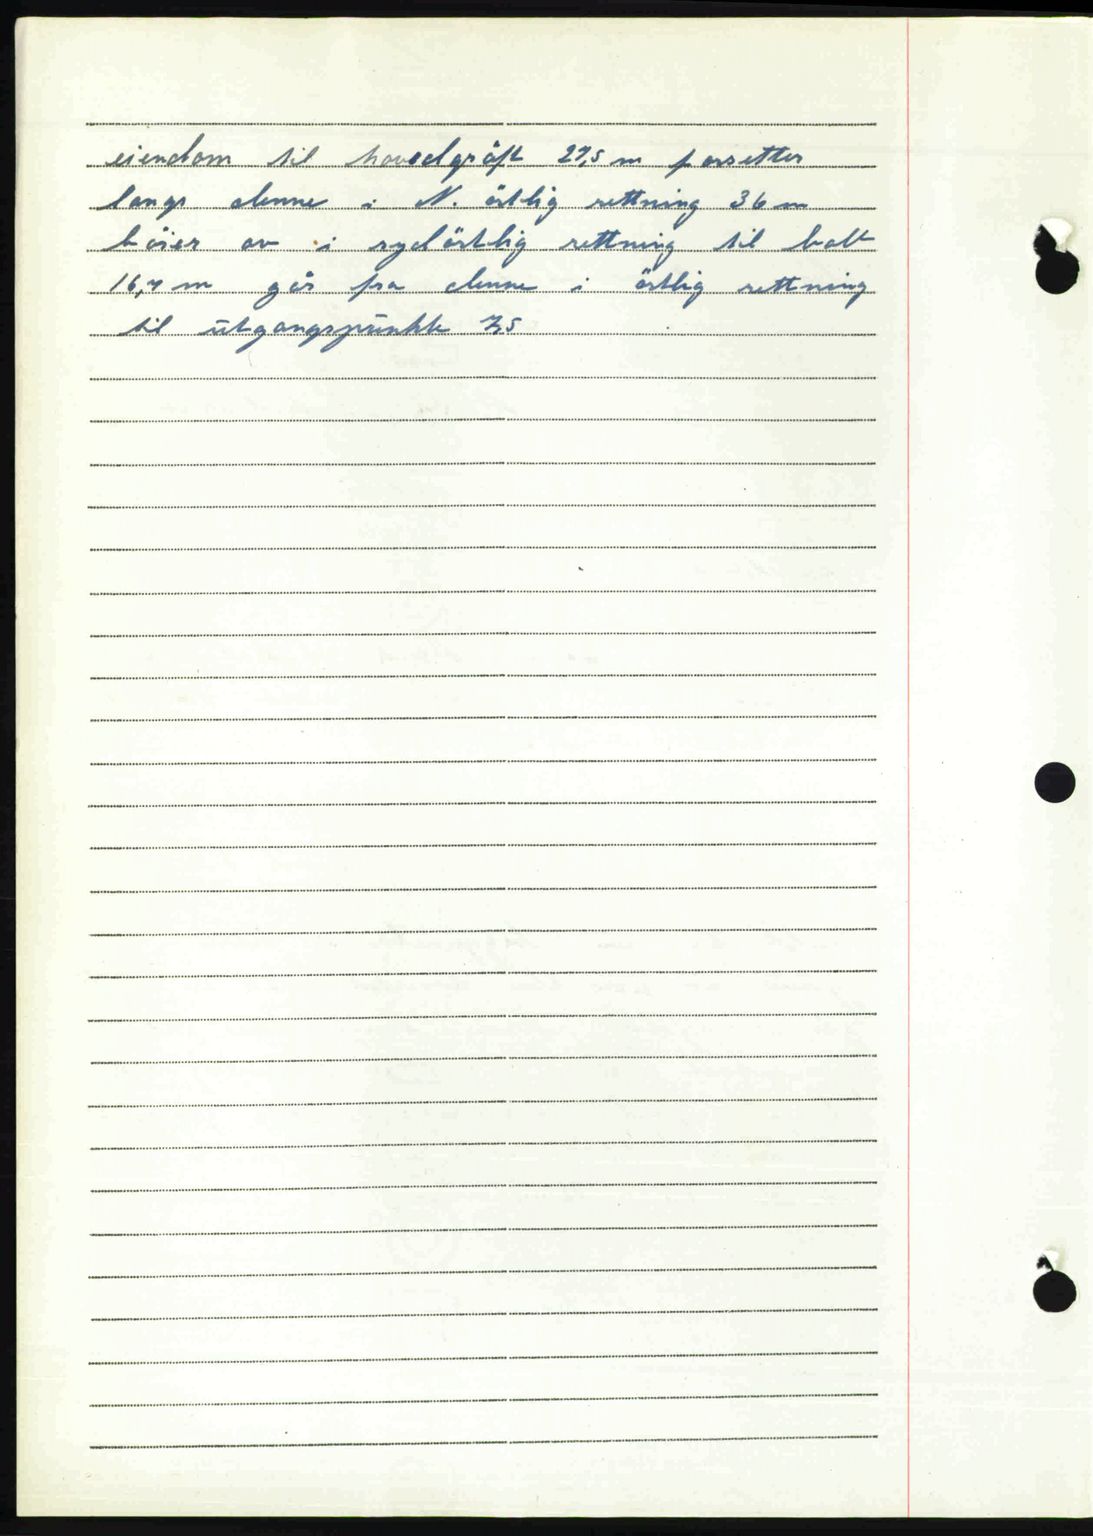 eiendom til hovedgröft 27,5 m forsetter
langs denne i N. östlig rettning 36 m
böier av i sydöstlig rettning til bolt
16,4 m går fra denne i östlig rettning
til utgangspunkte 7,5